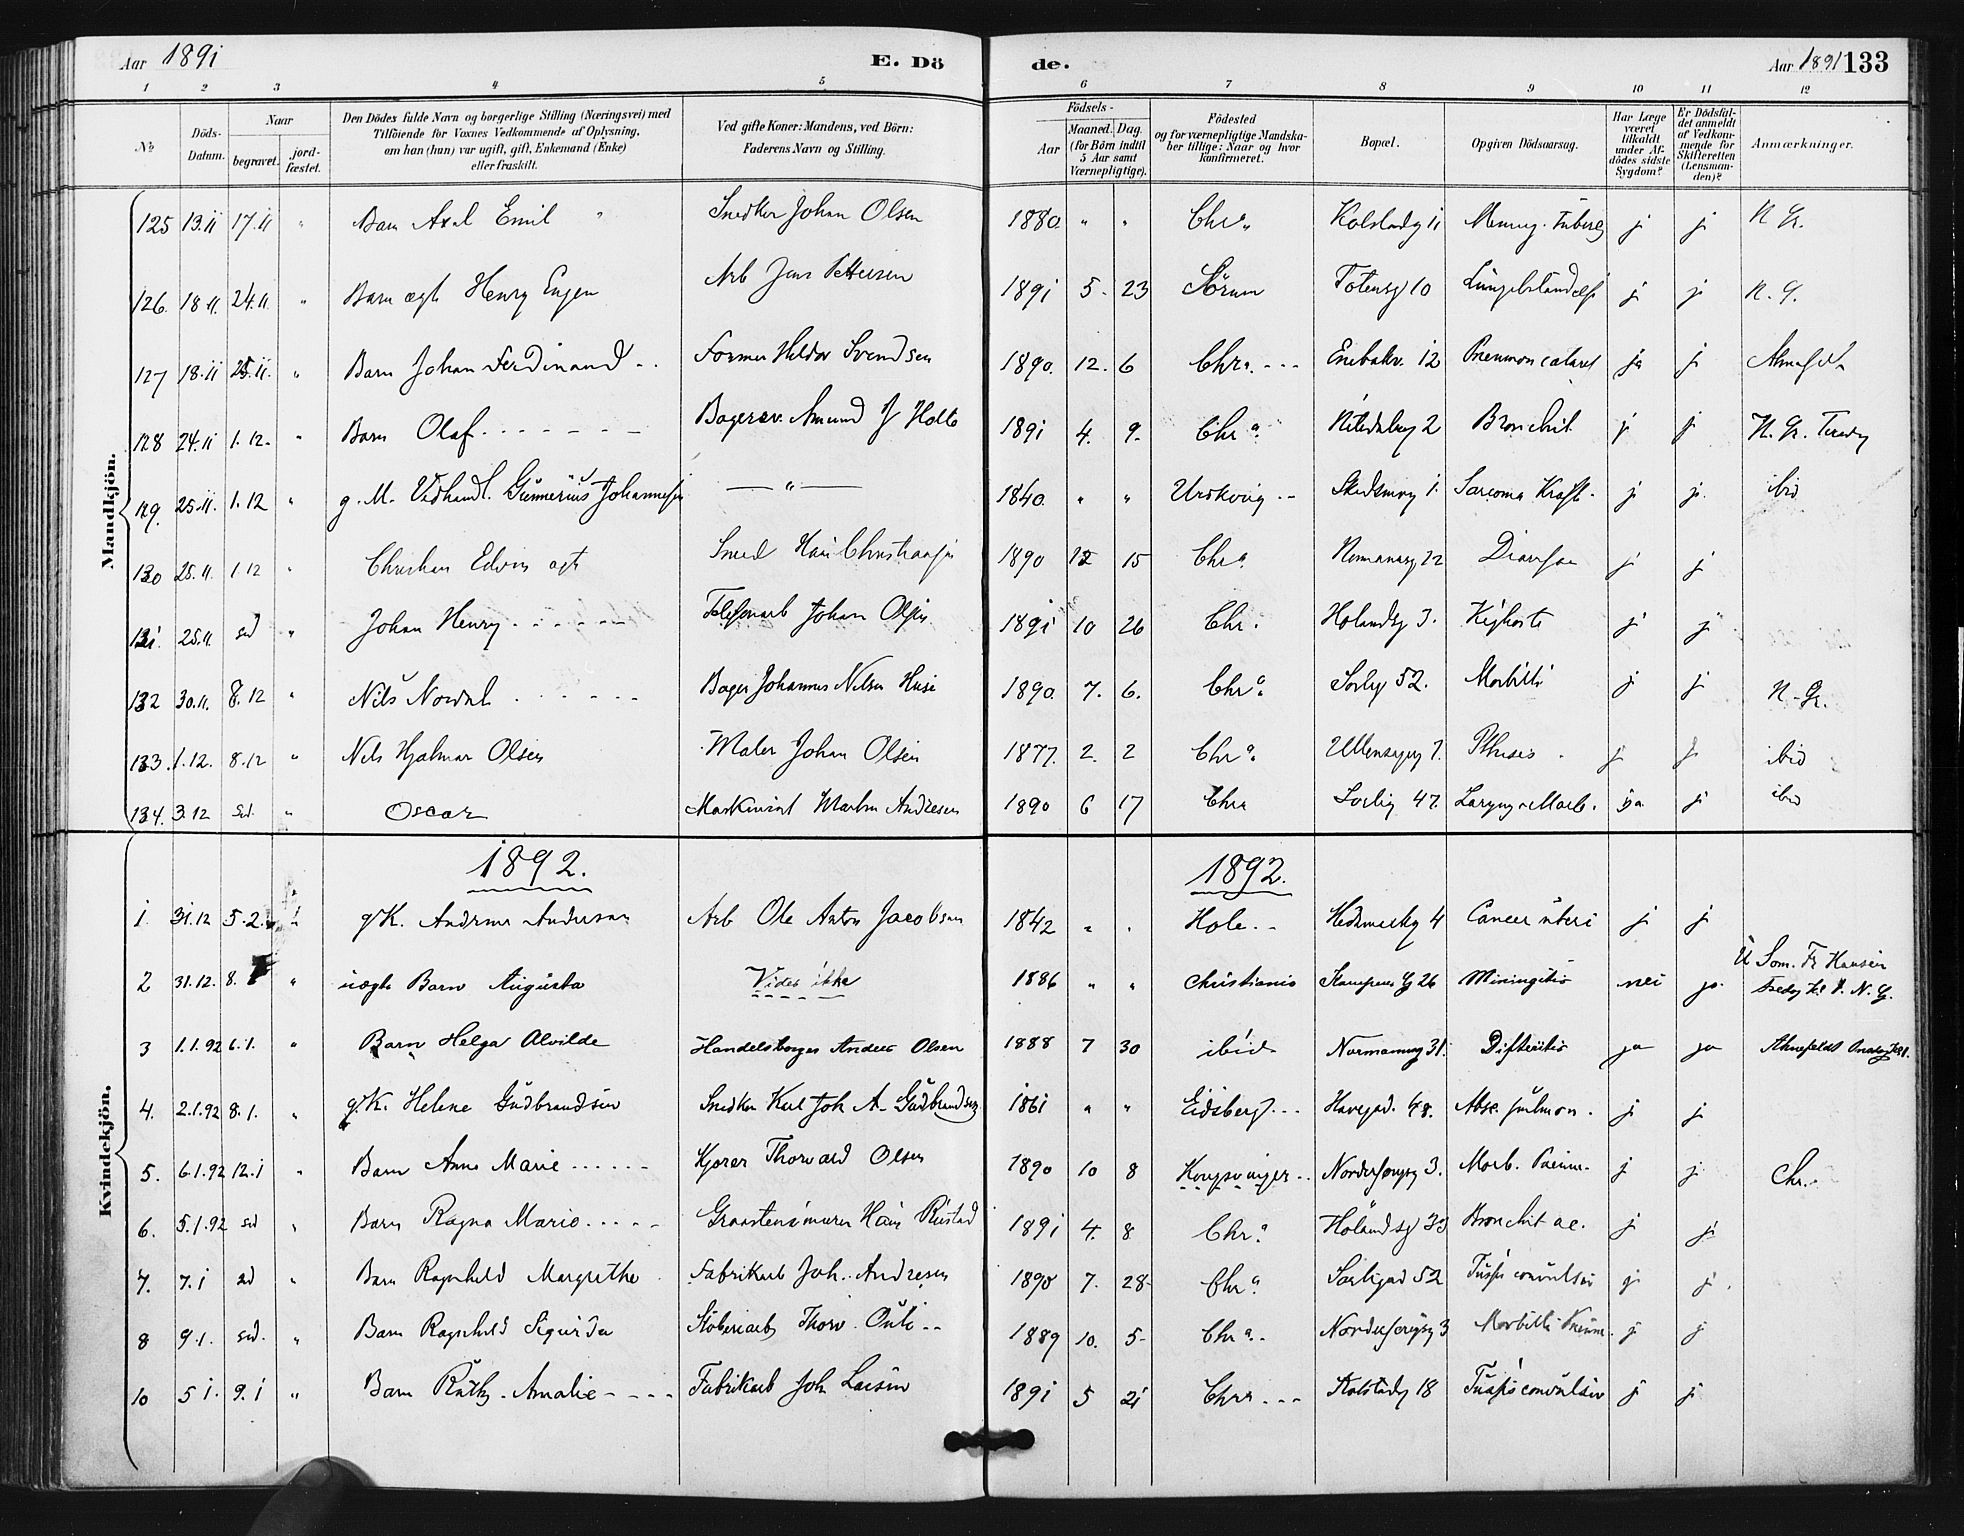 Aar 1891 E. Döde. Aar 1891 133
1 2 3 4 5 6 7 8 9 10 11 12
No
Döds-Datum.
Naar begravet. jordfæstet.
Den Dödes fulde Navn og borgerlige Stilling (Næringsvei) med
Tilföiende for Voxnes Vedkommende af Oplysning,
om han (hun) var ugift, gift, Enkemand (Enke)
eller fraskilt.
Ved gifte Koner: Mandens, ved Börn:
Faderens Navn og Stilling.
Födsels-
Aar Maaned. Dag.
(for Börn indtil
5 Aar samt
Værnepligtige).
Födested
og for værnepligtige Mandska-
ber tillige: Naar og hvor
konfirmeret.
Bopæl.
Opgiven Dödsaarsag.
Har Læge
været
tilkaldt
under Af-
dödes sidste
Sygdom?
Er Dödsfal-
det anmeldt
af Vedkom-
mende for
Skifteretten
(Lensman-
den)?
Anmærkninger.
Mandkjön.
125 13.11 17.11 " Barn Axel Emil " Snedker Johan Olsen 1880. " " Chr. Kolstadg 11 j j N Gr.
126. 18.11. 24.11. " Barn ægt Henry Eugen Arb Jens Pettersen 1891 5. 23 Sörum Totensg 10 j j N. G.
127 18.11 25.11. " Barn Johan Ferdinand Former Svendsen 1890. 12. 6 Chra. Enebakv. 12 Pneumon catarrh ja j
128 24.11 1.12. " Barn Olaf Bagersv. Amund J Holte 1891 4. 9. Chra. Nitedalsg 2 Bronchit. j j N. Gr.
129. 25.11. 1.12 " g. M. Vedhandl. Gunnerius Johannesen — " — 1840. " " Urskoug Skedsmog 1. Sarcoma Kræft. j j. ibid
130 25.11. 1.12 " Christian Edvin ægt 1890 12 15 Chra. Normannsg 22 j j
131. 25.11 sd " Johan Henry Telefonarb Johan Olsen 1891 10 26 Chr. Hölandsg 3. Kighoste j j
132 30.11. 8.12 " Nils Bager Johannes Nilsen 1890. 7. 6. Chra. Sorlig 52. Morbilli j j N. Gr.
133. 1.12. 8.12 " Nils Hjalmar Olsen Maler Johan Olsen 1877. 2. 2 Chra. Ullensagerg 7. Phtisis j j ibid
134. 3.12 sd. " Oscar Maskinist Martin Andresen 1890 6 17 Chra Sorlig 47. Laryng. Morb. ja j ibid
1892. 1892.
Kvindekjön.
1. 31.12 5.2. g. K. Andrine Andersen Arb Ole Anton Jacobsen 1842 " . Hole Hedemarksg 4 Cancer uteri j j
2 31.12. 8. " uægte Barn Augusta Vides ikke 1886 " " Christiania 26 Miningitis nei ja.
3 1.1.92 6.1. " Barn Helga Alvilde Anders Olsen 1888 7 30 ibid Normannsg 31. Difteritis ja ja
4. 2.1.92 8.1. " g. K. Helene Gudbrandsen Snedker Karl Joh A. Gudbrandsen 1861 " " Eidsberg 48. j j
5. 6.1.92 12.1 " Barn Anne Marie Kjører Thorvald Olsen 1890 10 8 Kongsvinger 3. Morb. Pneum. j j Chr.
6. 5.1.92 sd " Barn Ragna Marie Graastensmurer Hans Rustad 1891 4. 8 Chra. Hölandsg 33 Bronchit ac. j j
7. 7.1 sd " Barn Ragnhild Margrethe Fabrikarb Joh. Andresen 1890 7. 28 Chra. Sorligad 52 Tussis convulsiv j j
8 9.1. sd. " Barn Ragnhild Sigurda Stöberiarb Thorv. 1889 10. 5 Chra. 3 Morbilli Pneum. j j
10 5.1. 9.1 " Barn Ruth Amalie Fabrikarb Joh Larsen 1891 5 21 Chra Kolstadg 18 Tussis convulsiv j j